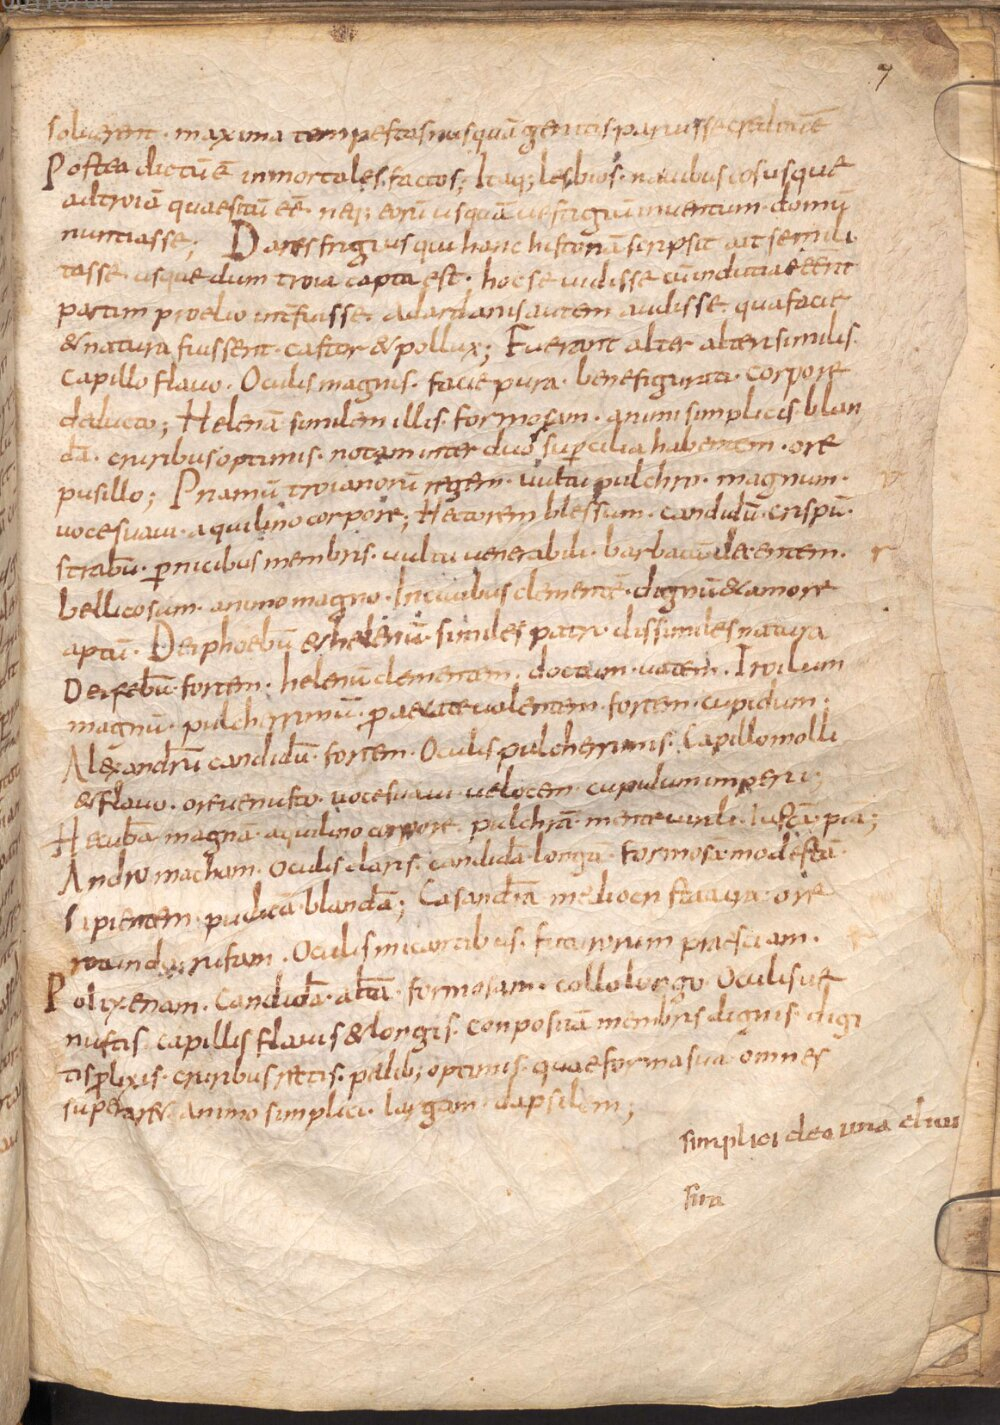 7
soluerent · maxima tempestas nusquā gentis
Postea dictū ē inmortales factos; Itaq; lesbios · nauibus eos usque
ad troiā quaesitū eē · neq; eorū usquā uestigiū inuentum · domū
nuntiasse; Dares frigius qui hanc historiā scripsit ait se mili
tasse usque dum troia capta est · hoc se uidisse cū indutiae eēnt
partim proelio int̄fuisse · a dardanis autem audisse · qua facie
& natura fuissent · castor & pollux; Fuerunt alter alteri similis ·
capillo flauo · Oculis magnis · facie pura · bene figurati · corpore
deducto; Helenā similem illis · formosam · animi simplicis · blan
dā · cruribus optimis · notam inter duo suꝑcilia habentem · ore
pusillo; Priamū troianorū regem · uultu pulchro · magnum ·
uoce suaui · aquilino corpore; Hectorem blessum · candidū · crispū ·
strabū · ꝑnicibus membris · uultu uenerabili · barbatū decentem ·
bellicosum · animo magno · In ciuibus clementē · dignū & amore
aptū · Deiphoebū & helenū · similes patri · dissimiles natura
Deifebū · fortem · helenū clementem · doctum · uatem · Troilum
magnū · pulcherrimū · ꝑ aetate ualentem · fortem · cupidum ;
Alexandrū candidū · fortem · Oculis pulcherrimis · Capillo molli
& flauo · ore uenusto · uoce suaui · uelocem · cupidum imperii ;
Hecubā · magnā · aquilino corpore · pulchrā · mente uirili · iustā · pia ;
Andromacham · Oculis claris · candidā · longā · formosā · modestā ·
Sapientem · pudicā · blandā ; Casandrā mediocri statura · ore
rotundo · rufam · Oculis micantibus · futurorum praesciam ·
Polixenam · Candidā · altā · formosam · collo longo · Oculis ue
nustis · capillis flauis & longis · conpositā membris dignis · digi
tis ꝓlixis · cruribus rectis · pedib; optimis · quae forma sua · omnes
superar& · Animo simplici · largam · dapsilem ;
simplici deo una
sua